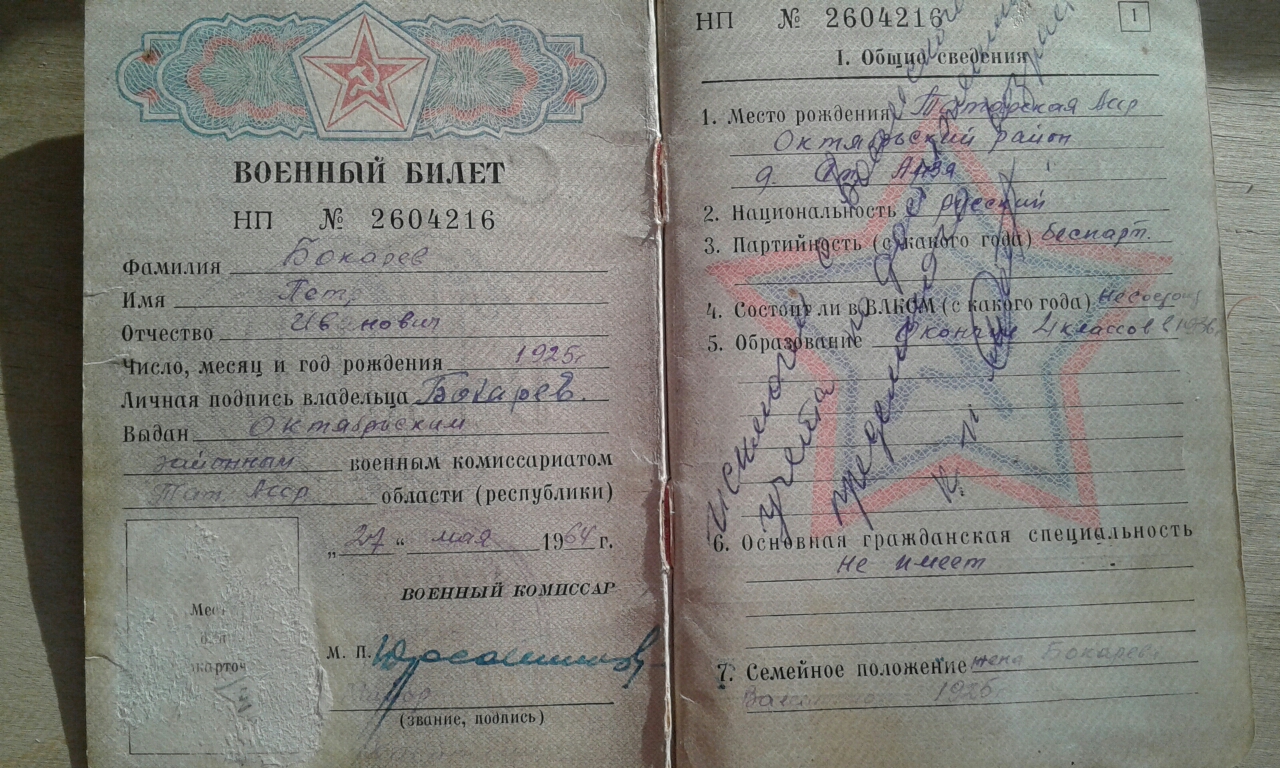 ВОЕННЫЙ БИЛЕТ
НП № 2604216
Фамилия Бокарев
Имя Петр
Отчество Иванович
Число, месяц и год рождения 1925г
Личная подпись владельца Бокарев.
Выдан Октябрьским
районным военным комиссариатом
Тат. Асср области (республики)
„27“ мая 1964 г.
ВОЕННЫЙ КОМИССАР
М. П.
майор
(звание, подпись)
НП № 2604216
1
I. Общие сведения
1. Место рождения Татарская Асср
Октябрьский район
д.
2. Национальность русский
3. Партийность (с какого года) беспарт.
4. Состоит ли в ВЛКСМ (с какого года) не состоит
5. Образование окончил 4 классов в 1936г
6. Основная гражданская специальность
не имеет
7. Семейное положение жена Бокарева
1925
учета по